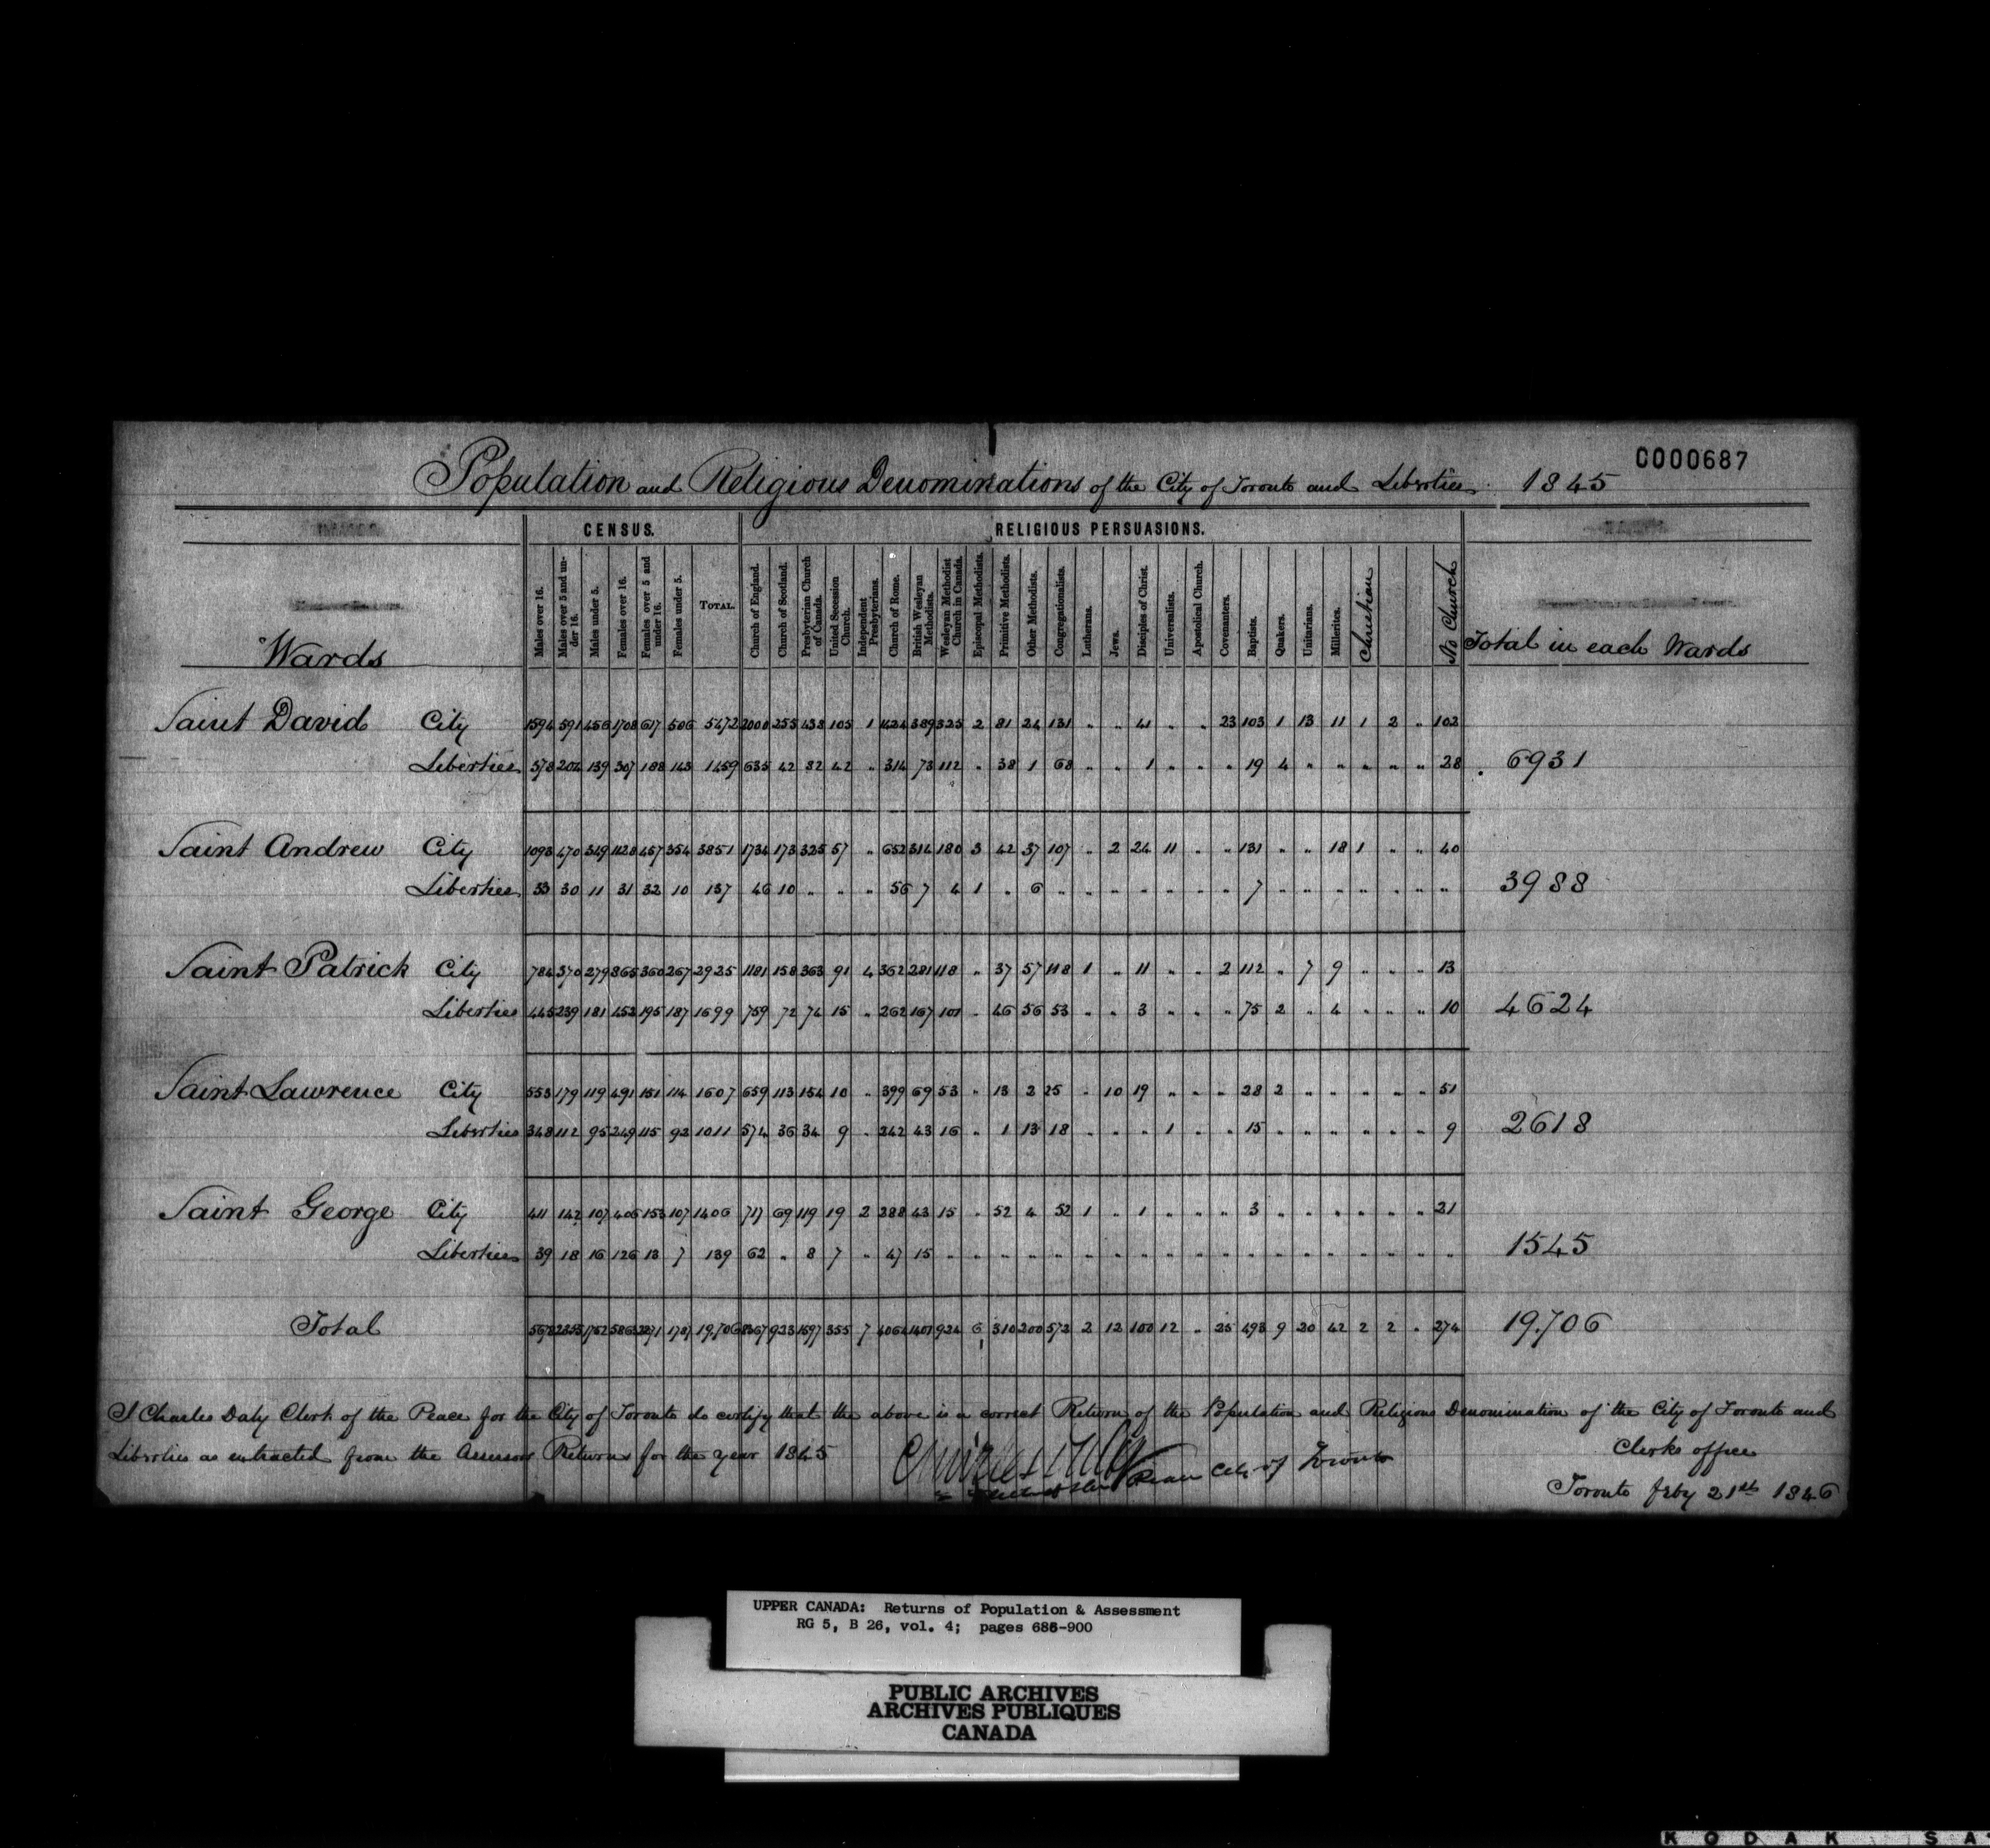 C000687
Population and Religious Denominations of the City of Toronto and Liberties. 1845
CENSUS. RELIGIOUS PERSUASIONS.
Wards Males over 16. Males over 5 and under 16. Males under 5. Females over 16. Females over 5 and under 16. Females under 5. TOTAL. Church of England. Church of Scotland. Presbyterian Church of Canada. United Secession Church. Independent Presbyterians. Church of Rome. British Wesleyan Methodists. Wesleyan Methodist Church in Canada. Episcopal Methodists. Primitive Methodists. Other Methodists. Congregationalists. Lutherans. Jews. Disciples of Christ. Universalists. Apostolical Church. Covenanters. Baptists. Quakers. Unitarians. Millerites. Christian No Church Total in each Wards
Saint David City 1594 591 456 1708 617 506 5472 2000 255 438 105 1 1424 389 325 2 81 24 131 " " 41 " " 23 103 1 13 11 1 2 " 102
Liberties 578 204 139 307 188 143 1459 635 42 82 42 " 314 73 112 " 38 1 68 " " 1 " " " 19 4 " " " " " 28 6931
Saint Andrew City 1093 470 349 1128 457 354 3851 1734 173 325 57 " 652 314 180 3 42 37 107 " 2 24 11 " " 131 " " 18 1 " " 40
Liberties 33 30 11 31 32 10 137 46 10 " " " 56 7 4 1 " 6 " " " " " " " 7 " " " " " " " 3988
Saint Patrick City 784 370 279 865 360 267 2925 1181 158 363 91 4 362 281 118 " 37 57 118 1 " 11 " " 2 112 " 7 9 " " " 13
Liberties 445 239 181 452 195 187 1699 759 72 74 15 " 262 167 101 " 46 56 53 " " 3 " " " 75 2 " 4 " " " 10 4624
Saint Lawrence City 553 179 119 491 151 114 1607 659 113 154 10 " 399 69 53 " 13 2 25 " 10 19 " " " 28 2 " " " " " 51
Liberties 348 112 95 249 115 92 1011 574 36 34 9 " 242 43 16 " 1 13 18 " " " 1 " " 15 " " " " " " 9 2618
Saint George City 411 142 107 406 153 107 1406 717 69 119 19 2 288 43 15 " 52 4 52 1 " 1 " " " 3 " " " " " " 21
Liberties 39 18 16 126 13 7 139 62 " 8 7 " 47 15 " " " " " " " " " " " " " " " " " " " 1545
Total 1787 19,706 923 1597 355 7 4064 1401 924 6 310 200 572 2 12 100 12 " 25 493 9 20 42 2 2 " 274 19,706
I Charles Daly Clerk of the Peace for the City of Toronto do certify that the above is a correct Return of the Population and Religious Denomination of the City of Toronto and
Liberties as extracted from the Assessors Returns for the year 1845
Charles Daly
Peace City of Toronto
Clerks office
Toronto feby 21st 1846
UPPER CANADA: Returns of Population & Assessment
RG 5, B 26, vol. 4; pages 686-900
PUBLIC ARCHIVES
ARCHIVES PUBLIQUES
CANADA
KODAK SA